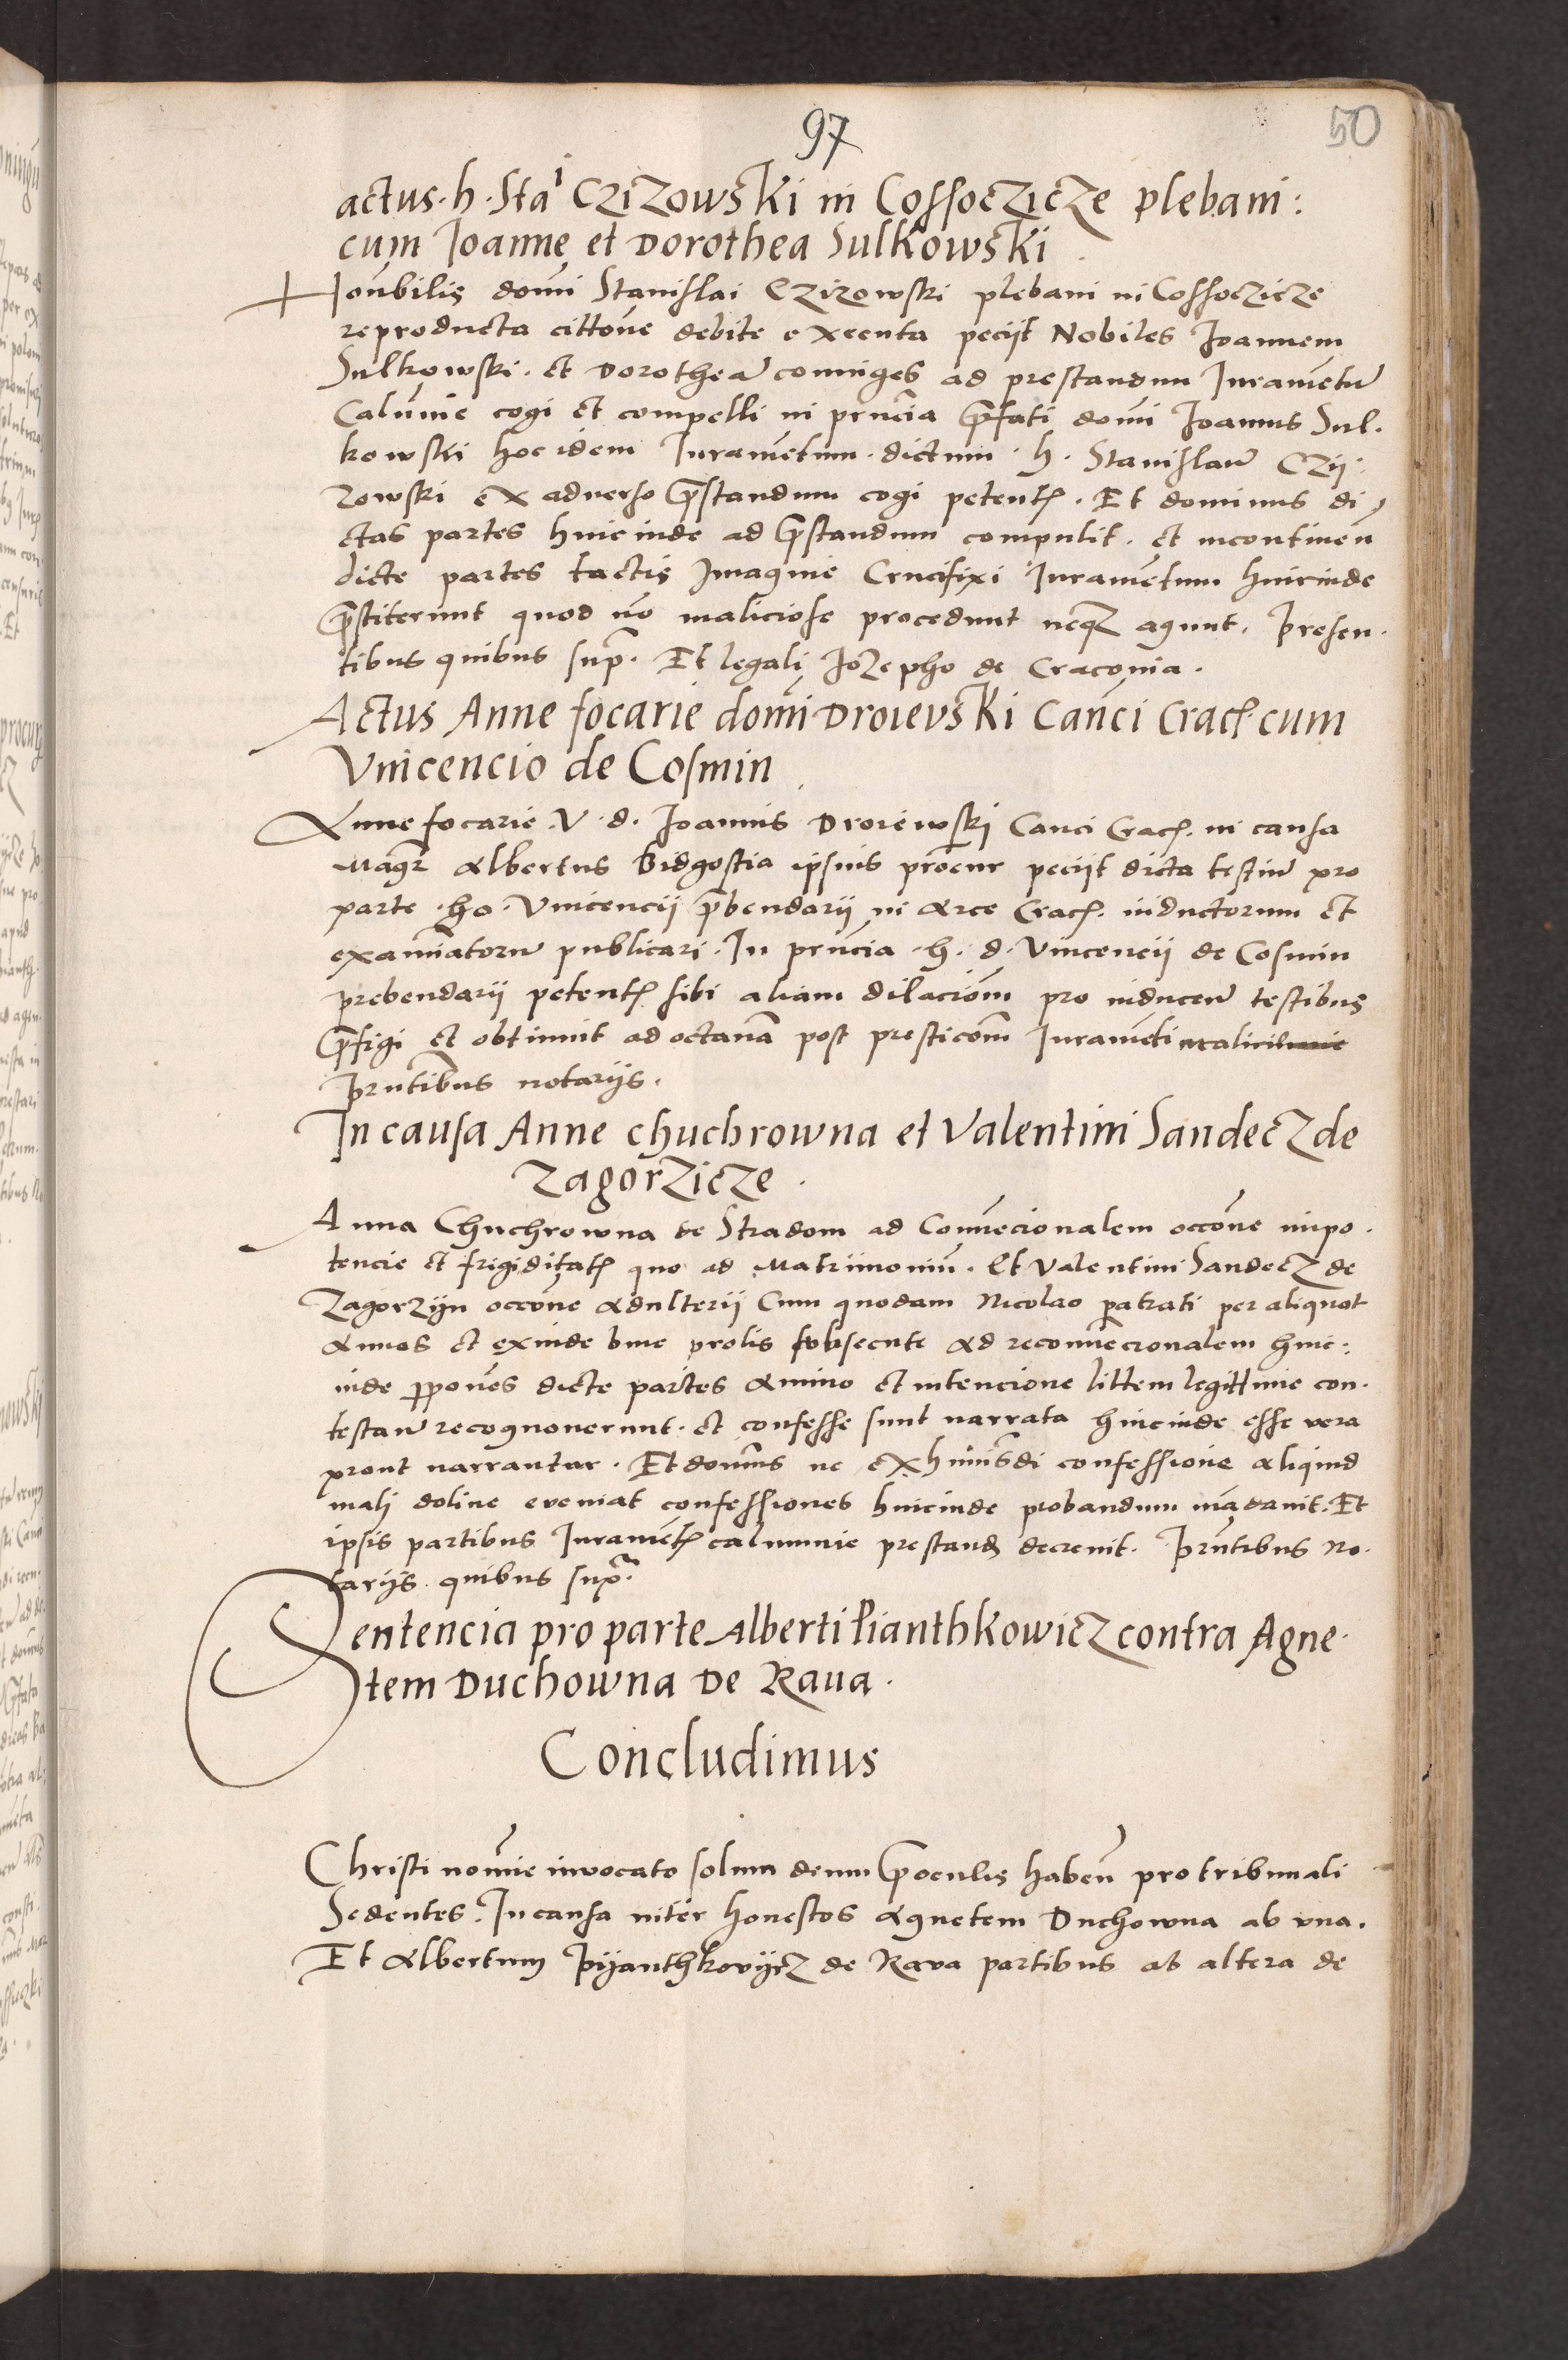 97
50
actus · h · Sta¹ CziZowski in Cossoczicze plebani :
cum Joanne et Dorothea Sulkowski
Honubilis domī Stanislai Czizowski plebani in Cossoczicze
reproducta cittōne debite executa peciit Nobiles Joannem
Sulkowski · et Dorotheā coniuges ad prestandum Juramētū
Calūnie cogi et compelli in prn̄cia p̄fati domī Joannis Sul·
kowski hoc idem Juramētum · dictum · h · Stanislaū Czij·
zowski ex adverso p̄standum cogi petentꝭ . Et dominus di
ctas partes hincinde ad p̄standum compulit . et incontinen̄
dicte partes tactis Jmagine Crucifixi Juramētum hincinde
p̄stiterunt quod nō maliciose procedunt neqȝ agunt . Presen·
tibus quibus sup̄ . Et legali Jozepho de Cracovia .
Actus Anne focarie domī Droievski Canci Cracꝭ cum
Vincencio de Cosmin
Anne focarie · V · d · Joannis Droiewskj Canci Cracꝭ . in causa
Magr̄ Albertus Bidgostia ipsius procur peciit dicta testiū pro
parte · ho · Vincencij p̄bendarij in Arce Cracꝭ . inductorum et
examinatorū publicari . In prn̄cia · h · d · Vincencij de Cosmin
prebendarij petentꝭ sibi aliam dilaciōm pro inducen̄ testibus
p̄figi et obtinuit ad octavā post presticōm Juramēti
Prn̄tibus notarijs .
In causa Anne chuchrowna et Valentini Sandecz de
Zagorzicze .
Anna Chuchrowna de Stradom ad Convēcionalem occōne impo·
tencie et frigiditatꝭ quo ad Matrimoniū . Et Valentini Sandecz de
Zagorzijn occōne Adulterij Cum quodam Nicolao patrati per aliquot
Annos et exinde bine prolis subsecute Ad reconvēcionalem hinc :
inde p̄ponēs dicte partes Animo et intencione littem legittime con·
testan̄ recognoverunt . et confesse sunt narrata hincinde esse vera
prout narrantur . Et domīns ne ex huiusdi confessione aliquid
mali doline eveniat confessiones hincinde probandum mādavit . Et
ipsis partibus Juramētꝭ calumnie prestandꝭ decrevit . Prn̄tibus No·
tarijs quibus sup̄ᵃ .
Sentencia pro parte Alberti Pianthkowicz contra Agne·
tem Duchowna de Rava .
Concludimus
Christi nomīe invocato solum deum p̄ oculis haben̄ pro tribunali
Sedentes . In causa inter honestos Agnetem Duchowna ab una .
Et Albertum Pijanthkovijcz de Rava partibus ab altera de